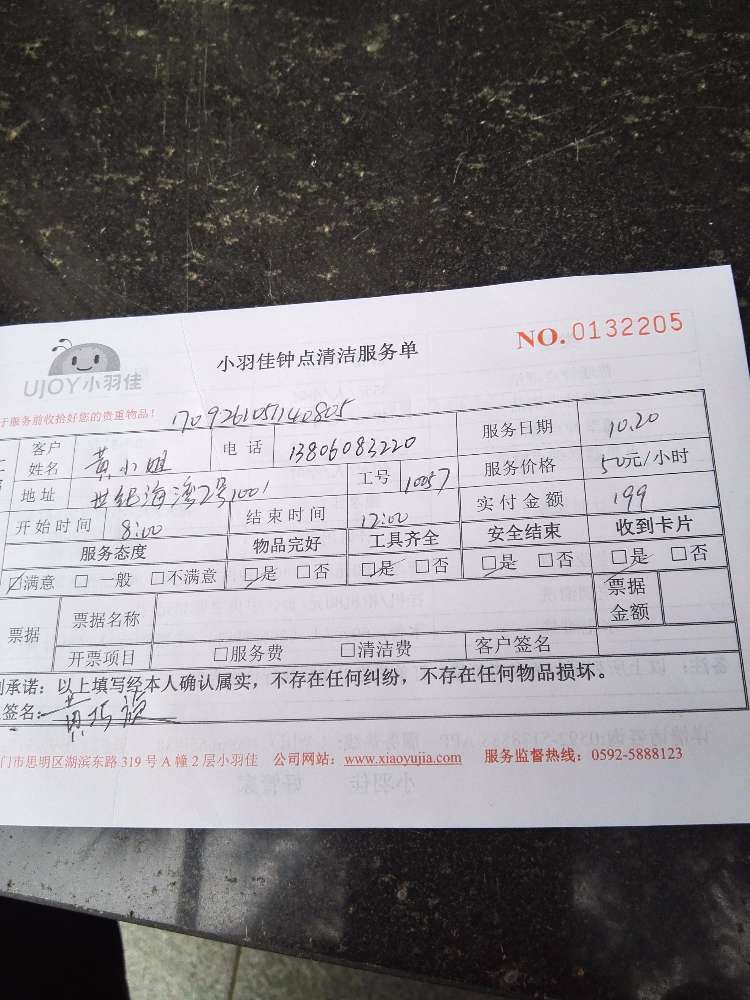 UJOY小羽佳
小羽佳钟点清洁服务单
NO. 0132205
于服务前收拾好您的贵重物品！
170926105140805
客户姓名 黄小姐 电话 13806083220 服务日期 10.20
地址 世纪海湾2号1001 工号 10057 服务价格 50元/小时
开始时间 8:00 结束时间 12:00 实付金额 199
服务态度 物品完好 工具齐全 安全结束 收到卡片
☑满意 □一般 □不满意 ☑是 □否 ☑是 □否 ☑是 □否 ☑是 □否
票据 票据名称 票据金额
开票项目 □服务费 □清洁费 客户签名
承诺：以上填写经本人确认属实，不存在任何纠纷，不存在任何物品损坏。
签名：
门市思明区湖滨东路 319 号 A 幢 2 层小羽佳 公司网站：www.xiaoyujia.com 服务监督热线：0592-5888123
小羽佳 好管家